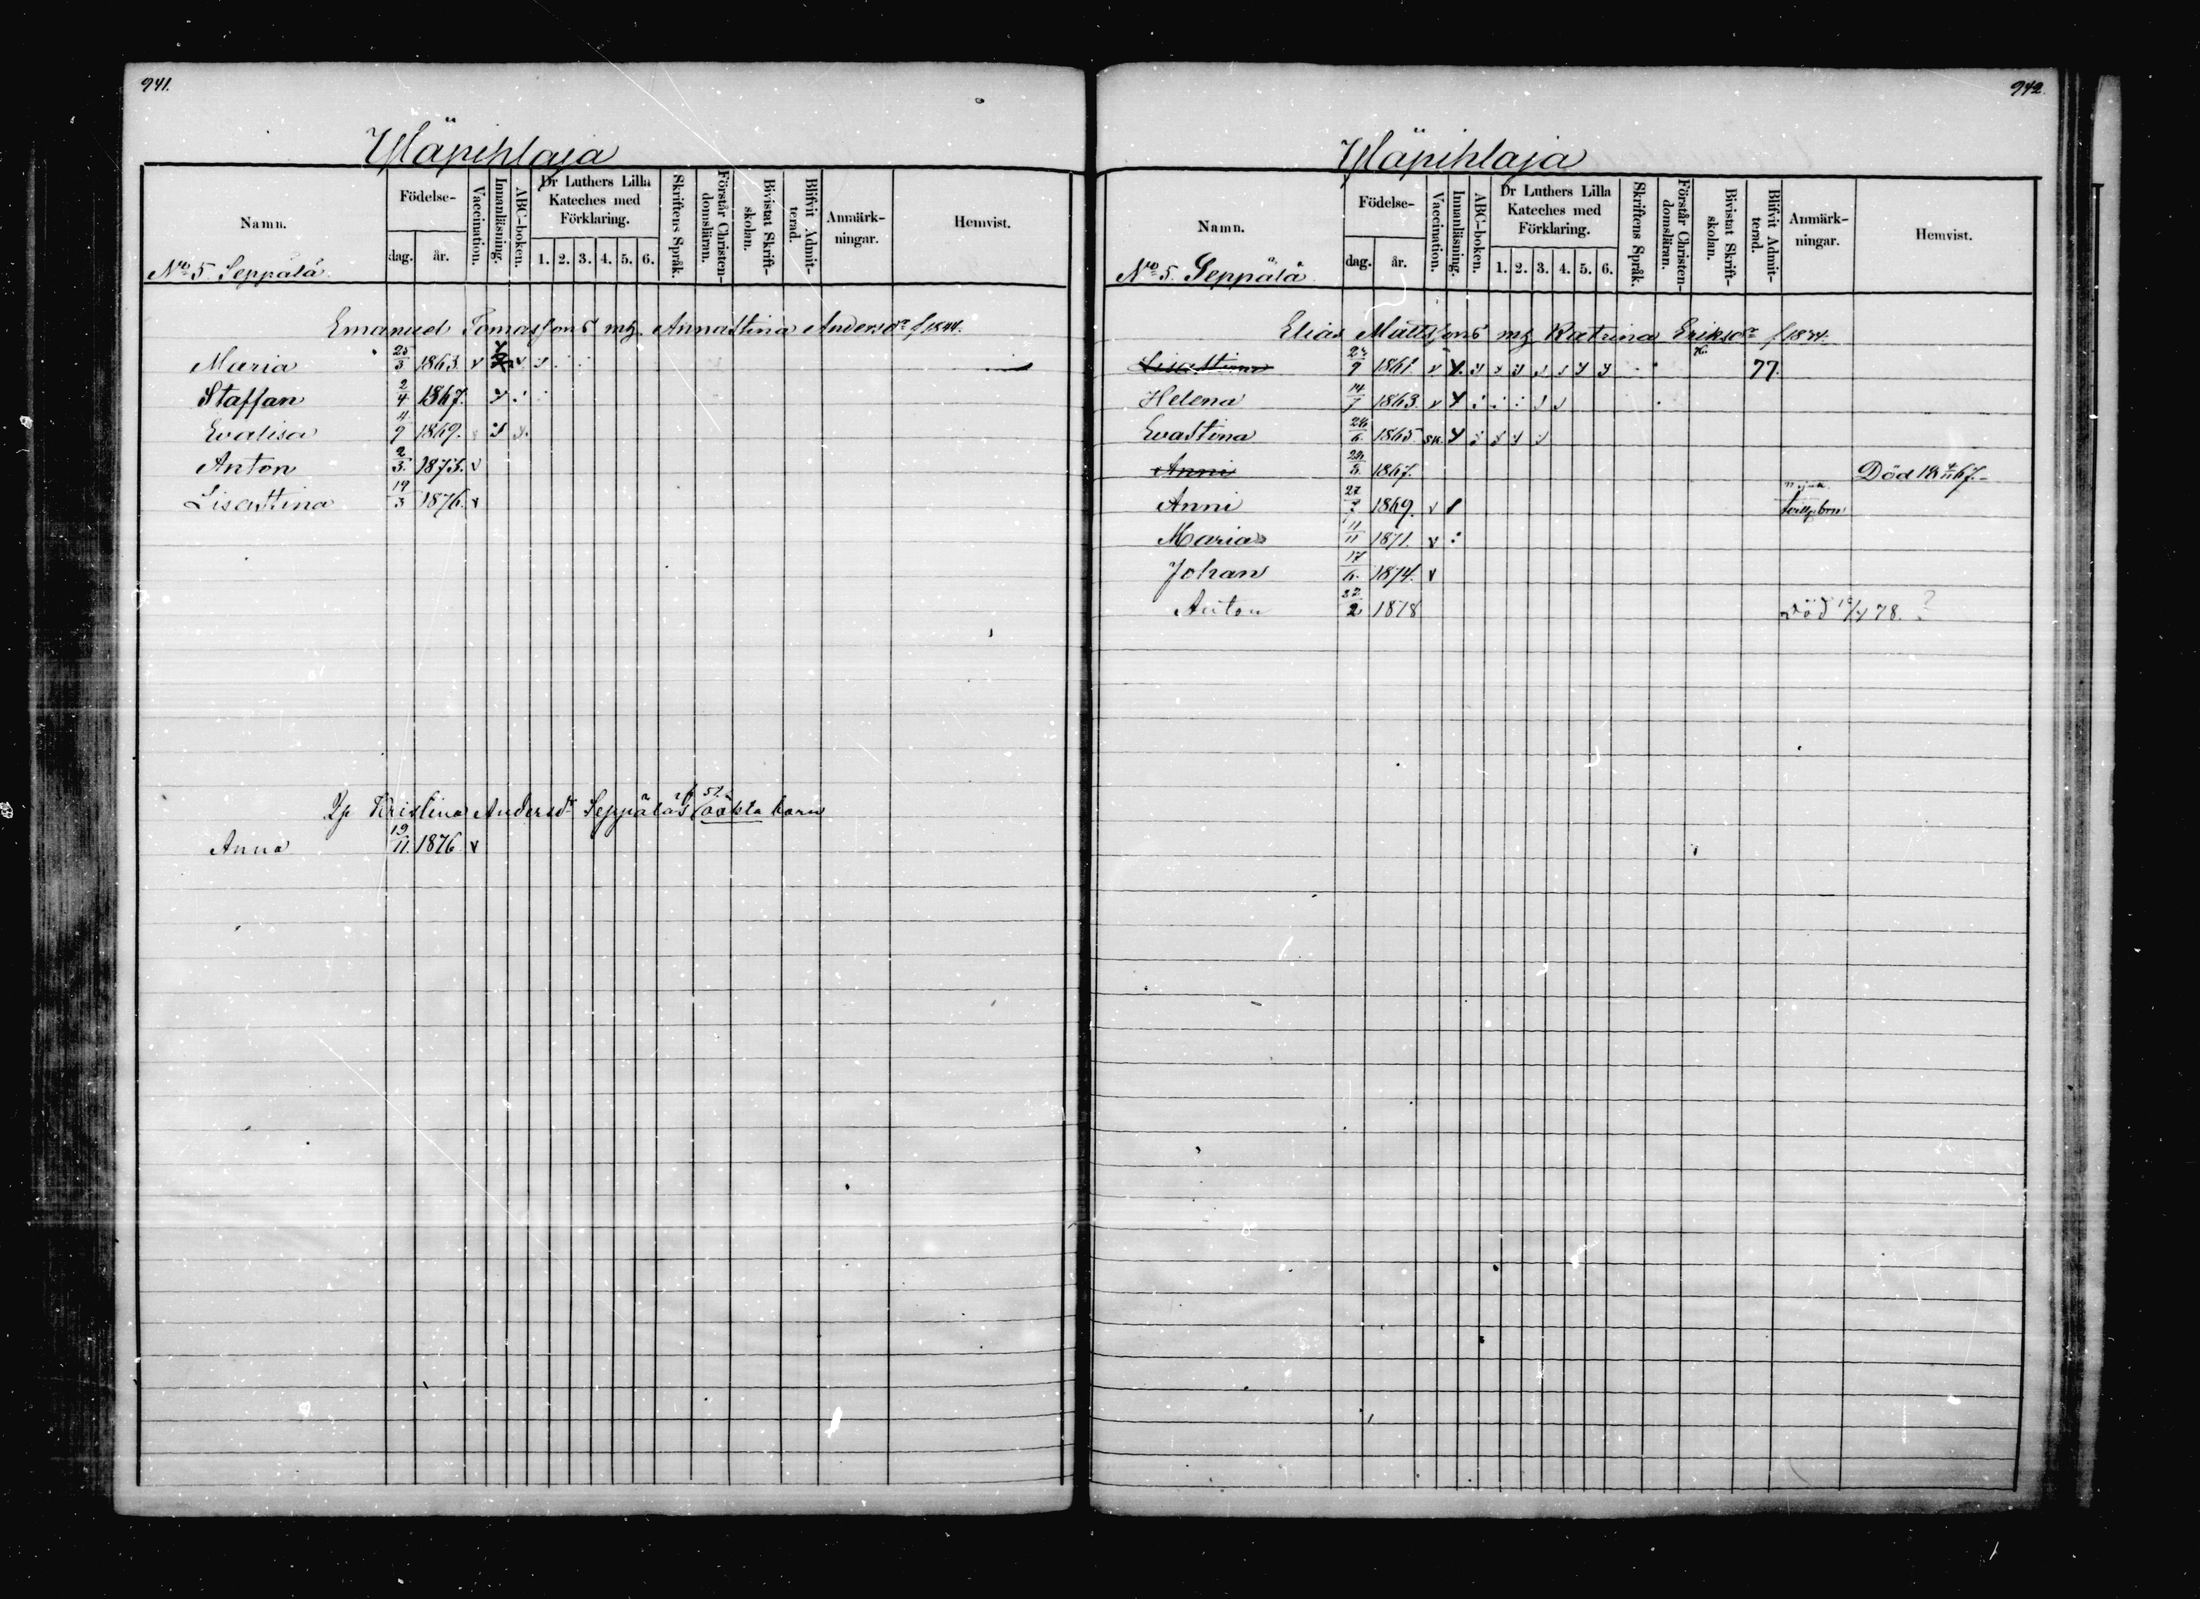 941.
Yläpihlaja
Namn.
Födelse-
dag. år.
Vaccination.
Innanläsning.
ABC-boken.
Dr Luthers Lilla Kateches med Förklaring.
1. 2. 3. 4. 5. 6.
Skriftens Språk.
Förstår Christendomsläran.
Bivistat Skriftskolan.
Blifvit Admitterad.
Anmärkningar.
Hemvist.
No 5 Seppälä
Emanuel Tomassons mh. Annastina Andersdr f 1844.
Maria 25/3 1863. v
Staffan 2/4 1867.
Evalisa 4/9 1869.
Anton 2/3 1873. v
Lisastina 19/3 1876. v
Kristina Andersdr Seppäläs f 51. oäkta barn
Anna 19/11. 1876 v
942.
Yläpihlaja
Namn.
Födelse-
dag. år.
Vaccination.
Innanläsning.
ABC-boken.
Dr Luthers Lilla Kateches med Förklaring.
1. 2. 3. 4. 5. 6.
Skriftens Språk.
Förstår Christendomsläran.
Bivistat Skriftskolan.
Blifvit Admitterad.
Anmärkningar.
Hemvist.
No 5. Seppälä
Elias Mattssons mh Katrina Eriksdr f 1834.
Lisastina 1861 v 77.
Helena 14/7 1863. v
Evastina 1865
Anni 1867. Död 18 67.
Anni 27/7 1869. v
Maria 11/11 1871. v
Johan 17/6. 1874. v
Anton 1878 Död 78. ?